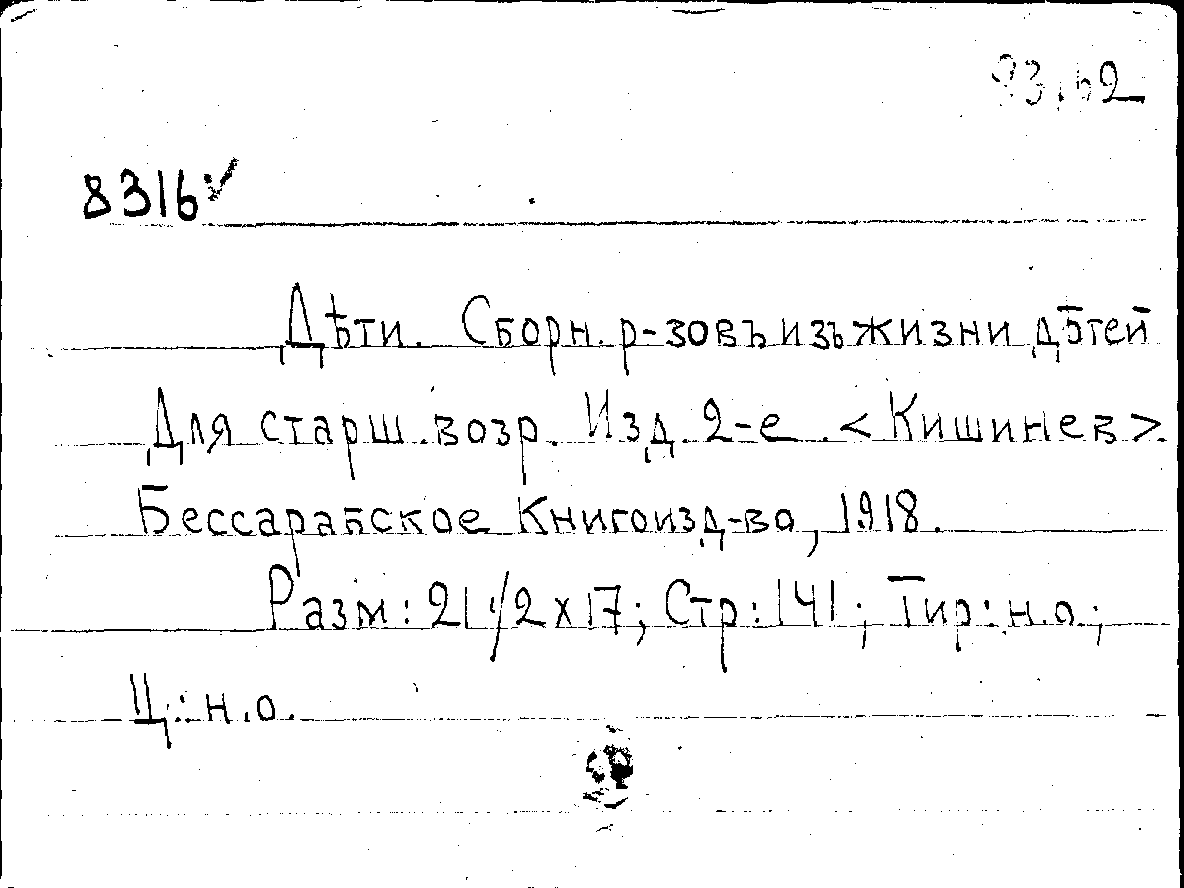 8316✓
Дѣти. Сборн. р-зовъ изъ жизни дѣтей
Для старш. возр. Изд. 2-е. <Кишинев>.
Бессарабское Книгоизд-во, 1918.
Разм: 21 1/2 x 17; Стр: 141; Тир: н.о.;
Ц: н.о.